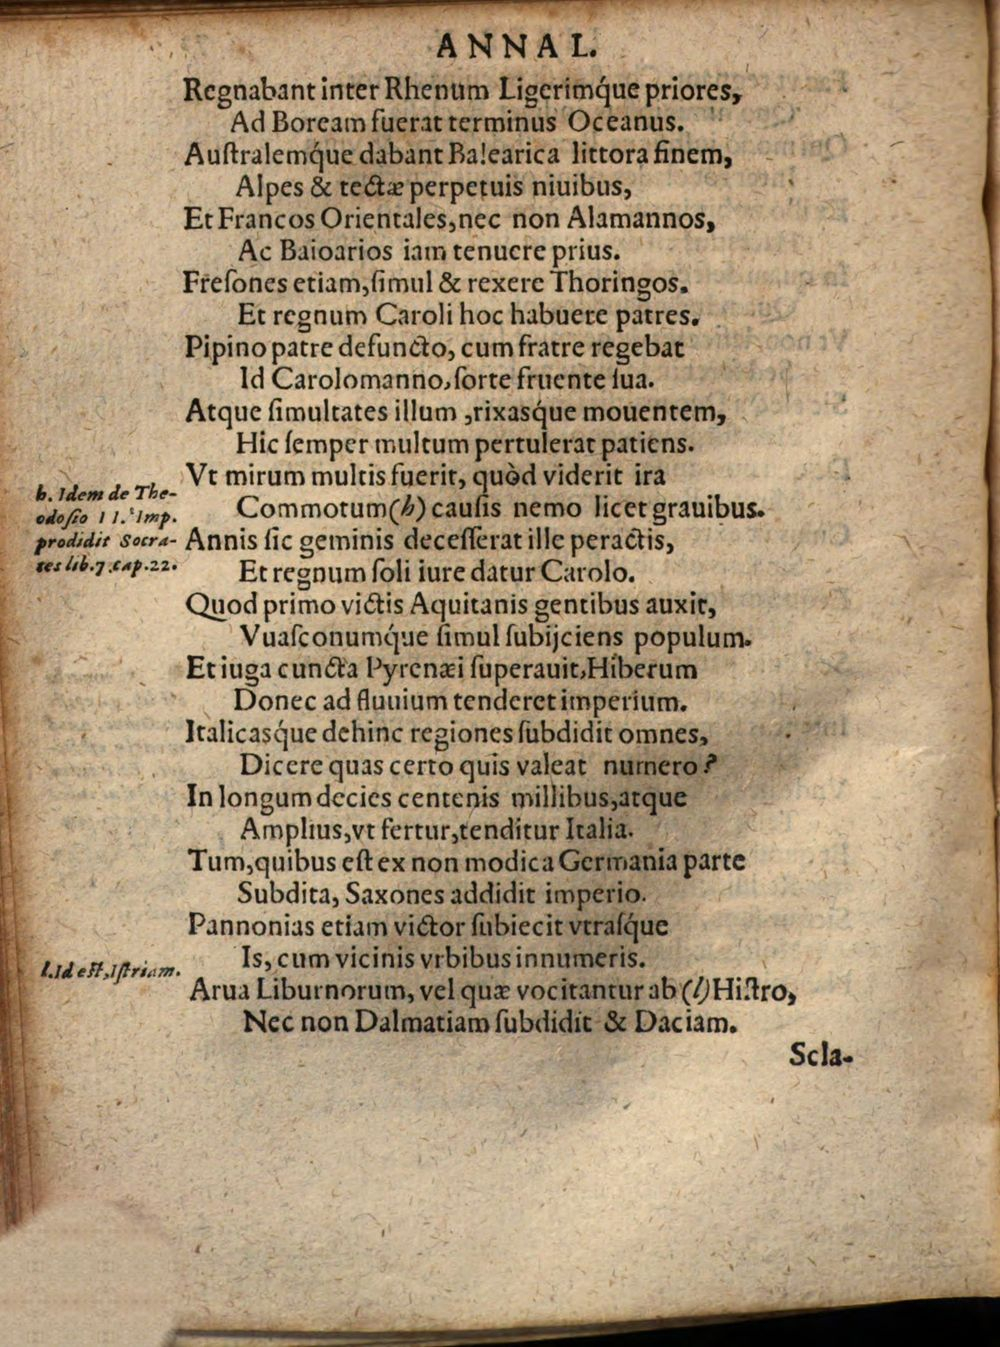 ANNAL.
Regnabant inter Rhenum Ligerimq́ue priores,
Ad Boream fuerat terminus Oceanus.
Auſtralemq́ue dabant Balearica littora finem,
Alpes & tectæ perpetuis niuibus,
Et Francos Orientales, nec non Alamannos,
Ac Baioarios iam tenuere prius.
Freſones etiam, ſimul & rexere Thoringos.
Et regnum Caroli hoc habuere patres.
Pipino patre defuncto, cum fratre regebat
Id Carolomanno, ſorte fruente ſua.
Atque ſimultates illum , rixasq́ue mouentem,
Hic ſemper multum pertulerat patiens.
Vt mirum multis fuerit, quòd viderit ira
Commotum (h) cauſis nemo licet grauibus.
Annis ſic geminis deceſſerat ille peractis,
Et regnum ſoli iure datur Carolo.
Quod primo victis Aquitanis gentibus auxit,
Vuaſconumq́ue ſimul ſubijciens populum.
Et iuga cuncta Pyrenæi ſuperauit, Hiberum
Donec ad fluuium tenderet imperium.
Italicasq́ue dehinc regiones ſubdidit omnes,
Dicere quas certo quis valeat numero?
In longum decies centenis millibus, atque
Amplius, vt fertur, tenditur Italia.
Tum, quibus eſt ex non modica Germania parte
Subdita, Saxones addidit imperio.
Pannonias etiam victor ſubiecit vtraſq́ue
Is, cum vicinis vrbibus innumeris.
Arua Liburnorum, vel quæ vocitantur ab (l) Hiſtro,
Nec non Dalmatiam ſubdidit & Daciam.
Scla-
h. Idem de The-
odoſio II. Imp.
prodidit Socra-
tes lib. 7. cap. 22.
l. Id eſt, Iſtriam.